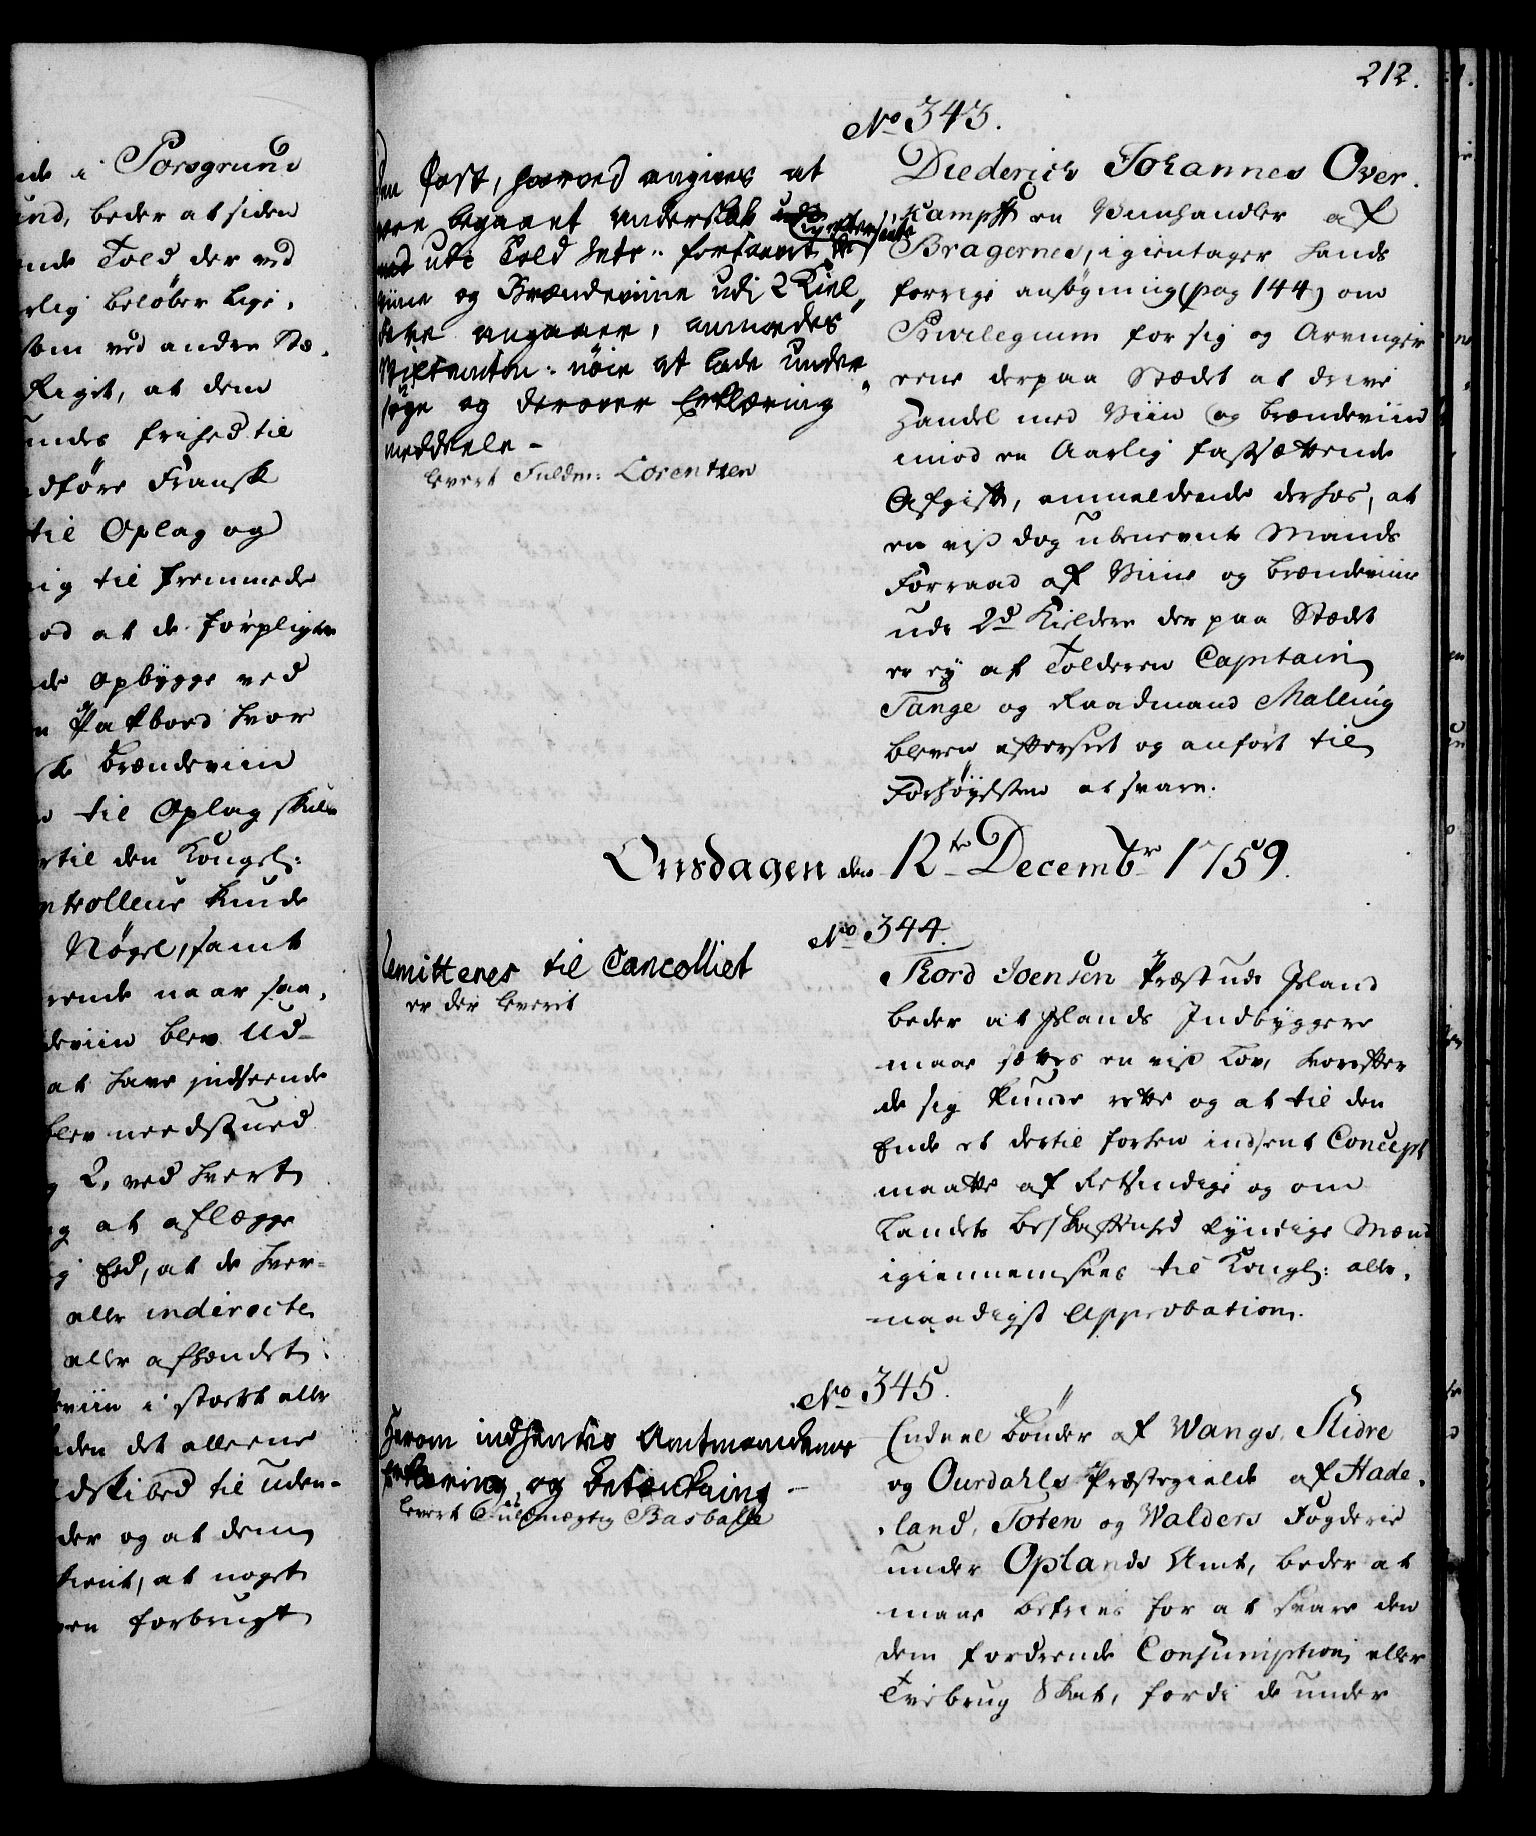 212.
de i Porsgrund
und, beder at siden
nde Told der ved
rlig beløber lige,
som ved andre Stæ,
Riget, at dem
undes frihed til
dføre Fransk
til Oplag og
ig til fremmede
od at de forpligter
de opbygge ved
n Pakboed hvor
sk Brændeviin
til Oplag skulle
rtil den Kongel:
ntrolleur kunde
Nøgel, samt
rende naar saa,
deviin blev Ud-
at have indseende
blev needstued
2, ved hvert
g at aflægge
g Eed, at de hver-
eller indirecte
eller afhændet
eviin i stort eller
den det alleene
dskibed til uden-
der og at dem
tient, at noget
ven forbrugt
No 343.
den Post, hvorved angives at
være begaaet Underslæb
udi Told
viine og Brændeviine udi 2 Kiel,
dere angaaer, anmodes
Stiftamtm: nøie at lade under,
søge og derover Erklæring
meddeele -
levert Fuldm: Lorentzen
Diederich Johannes Over.
kampff en Viinhandler af
Bragernes, igientager hands
forrige ansøgning (pag 144) om
Privilegium for sig og Arvinger
eene derpaa Stædet at drive
Handel med Viin og brændeviin
imod en Aarlig fastsættende
Afgift, anmeldende derhos, at
en viß dog ubenevnt Mands
Forraad af Viine og brændeviine
udi 2de Kieldere der paa Stædet
er ey af Tolderen Captain
Tange og Raadmand Malling
bleven efterseet og anført til
Forhøyelsen at svare.
Onsdagen den 12te Decembr 1759.
No 344.
Remitteres til Cancelliet
er der leverit
Thord Joensen Præst udi Island
beder at Islands Indbyggere
maae sættes en viß Lov, hvorefter
de sig kunde rette og at til den
Ende et dertil forhen indsent Concept
maatte af Retsindige og om
Landets beskaffenhed kyndige Mænd
igiennemsees til Kongel: aller,
naadigst Approbation.
No 345.
Herom indhentes Amtmandens
Erklæring og Betænkning -
levert Fuldmægtig Basballe
Endeel bønder af Wangs, Slidre
og Ourdahls Præstegielde af Hade,
land, Toten og Walders Fogderie
under Oplands Amt, beder at
maae befries for at svare den
dem fordrende Consumption eller
Tvibrug Skat, fordi de under